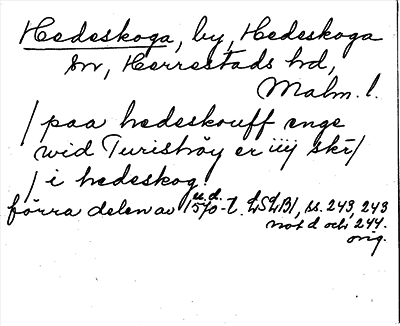 Hedeskoga, by, Hedeskoga
sn, Herrestads hd,
Malm. l.
/ paa hedeskouff enge
wid Turishøy er iiij skr/
/ i hedeskog
u.d.
förra delen av 1570-t. LSLB1, ss. 243, 243
not d och 244.
orig.